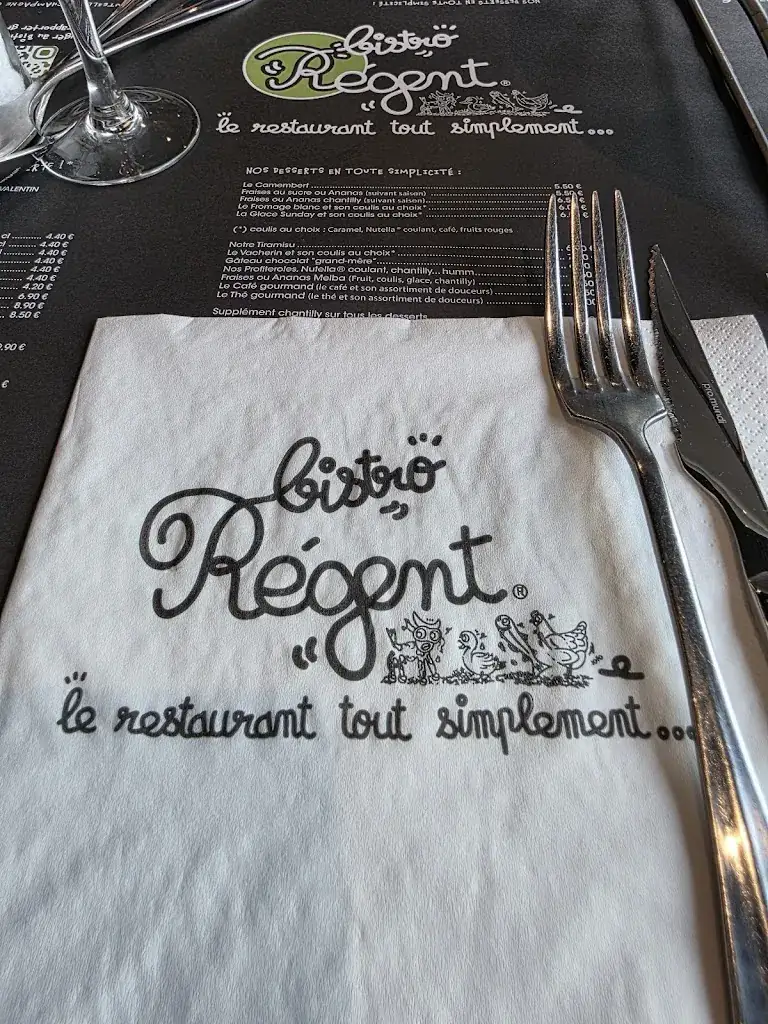 bistro
Régent®
le restaurant tout simplement...
NOS DESSERTS EN TOUTE SIMPLICITÉ :
Le Camembert 5.50 €
Fraises au sucre ou Ananas (suivant saison)
Fraises ou Ananas chantilly (suivant saison)
Le Fromage blanc et son coulis au choix*
La Glace Sunday et son coulis au choix*
(*) coulis au choix : Caramel, Nutella® coulant, café, fruits rouges
Notre Tiramisu
Le Vacherin et son coulis au choix*
Gâteau chocolat "grand-mère"
Nos Profiteroles, Nutella® coulant, chantilly... humm
Fraises ou Ananas Melba (Fruit, coulis, glace, chantilly)
Le Café gourmand (le café et son assortiment de douceurs)
Le Thé gourmand (le thé et son assortiment de douceurs)
Supplément chantilly sur tous les desserts
VALENTIN
cl .... 4.40 €
cl .... 4.40 €
4.40 €
4.40 €
4.40 €
4.20 €
6.90 €
8.90 €
8.50 €
.90 €
€
bistro
Régent®
le restaurant tout simplement...
pro.mundi